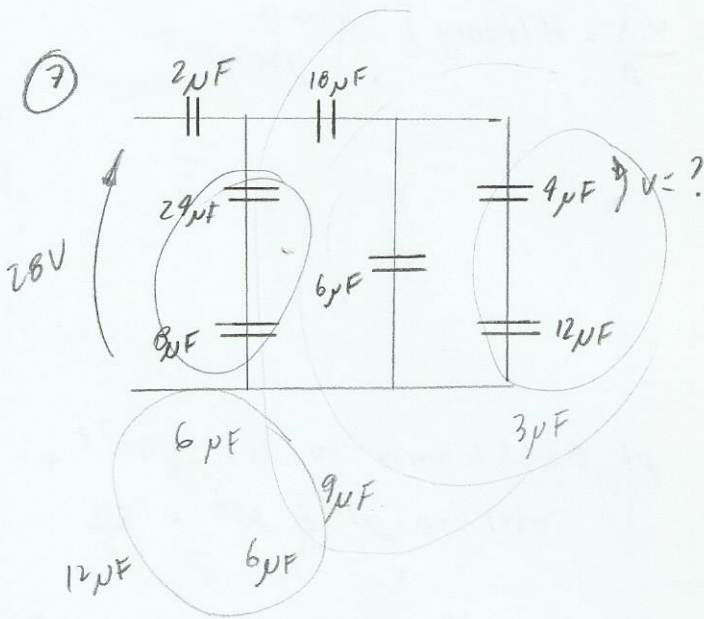 7
2µF 18µF
24µF 4µF V=?
28V 6µF
8µF 12µF
6µF 3µF
9µF
12µF 6µF